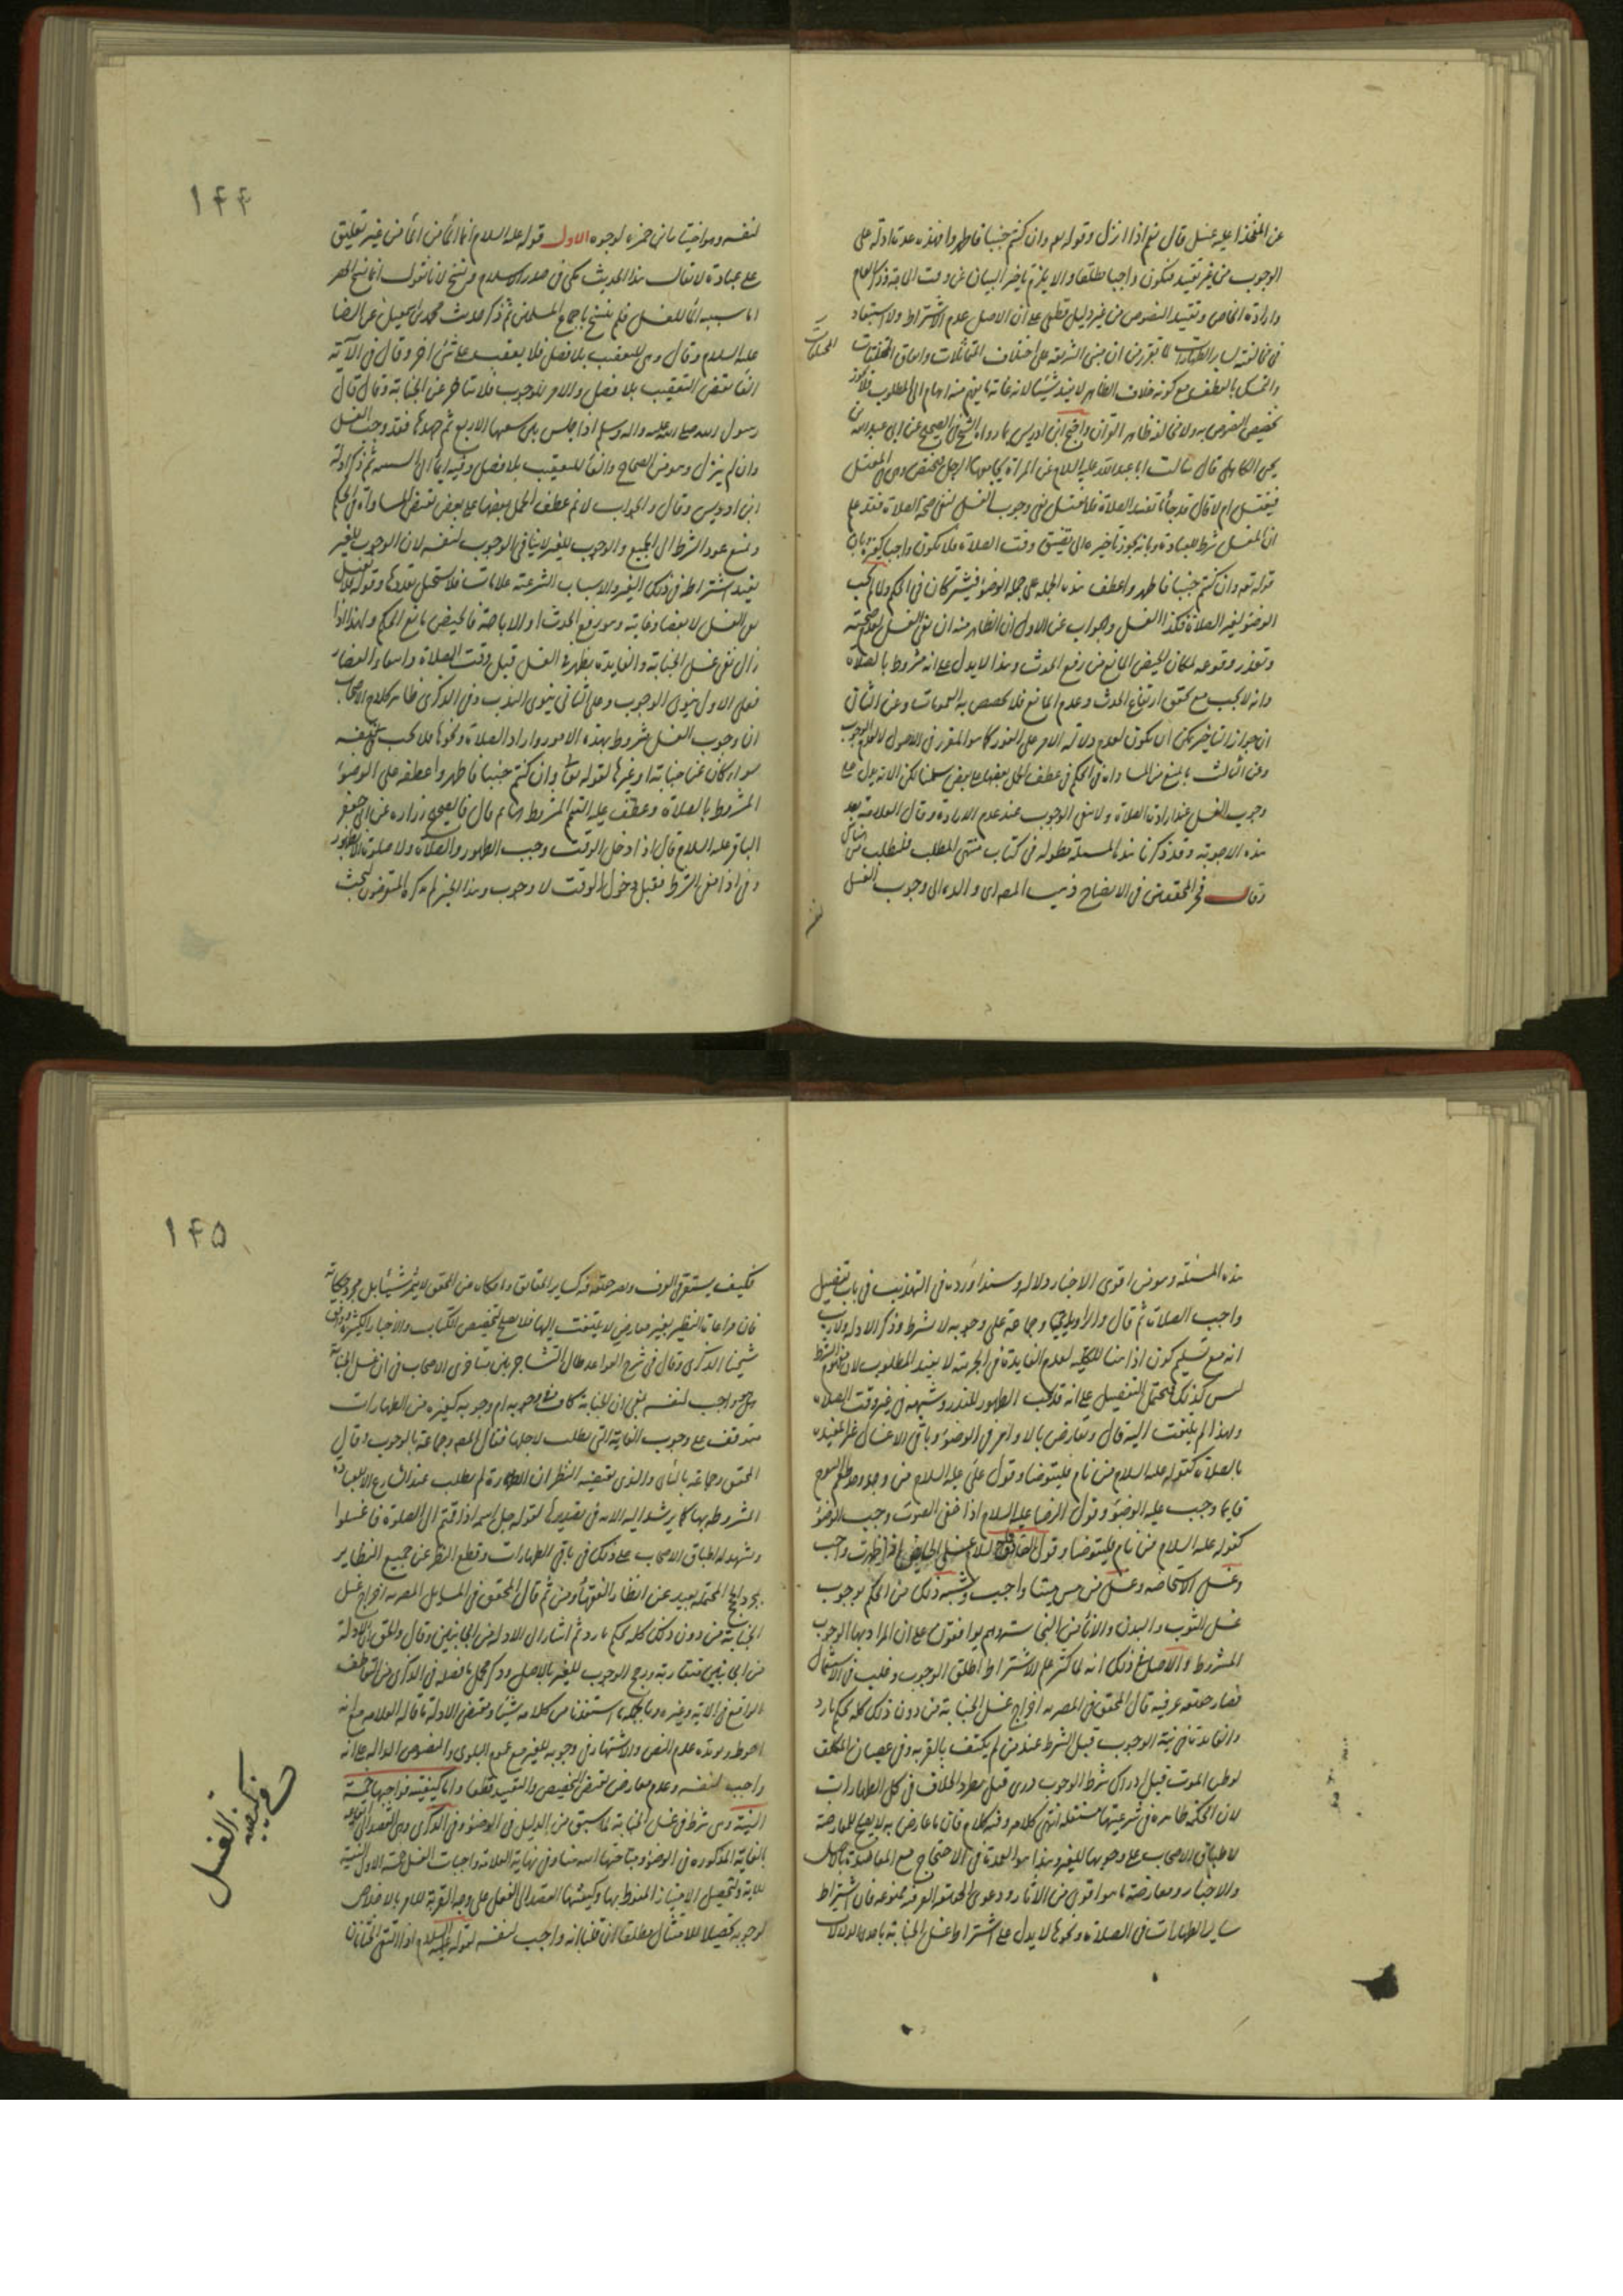 عن المفخذ اعليه غسل قال نعم اذا انزل وقوله تعم وان كنتم جنبا فاطهروا فهذه عدة ادلة على
الوجوب من غير تقييد فيكون واجبا مطلقا والا يلزم تاخير البيان عن وقت الحاجة وذكر العام
وارادة الخاص وتقييد النصوص من غير دليل قطعي على ان الاصل عدم الاشتراط ولا استبعاد
في مخالفته لساير الطهارات لما تقرر من ان مبنى الشريعة على اختلاف المتماثلات واتفاق المختلفات
والتمسك بالعطف مع كونه خلاف الظاهر لا يفيد شيئا لانه غاية ما يفهم منه ابهام الى المطلوب فلا يجوز
تخصيص النصوص به ولا مخالفة ظاهر القران واحتج ابن ادريس بما رواه الشيخ في الصحيح عن ابي عبدالله بن
يحيى الكاهلي قال سالت ابا عبدالله عليه السلام عن المراة يجامعها الرجل فتحيض وهي في المغتسل
فتغتسل ام لا قال قد جاءها ما يفسد الصلاة فلا تغتسل نفي وجوب الغسل لنفي صحة الصلاة فقد علم
ان الغسل شرط للعبادة وبانه يجوز تاخيره الى تضيق وقت الصلاة فلا يكون واجبا كغيره وبان
قوله تعم وان كنتم جنبا فاطهروا عطف هذه الجملة على جملة الوضوء فيشتركان في الحكم ولما لم يجب
الوضوء لغير الصلاة فكذا الغسل والجواب عن الاول ان الظاهر منه ان نفي الغسل لعدم صحته
وتعذر وقوعه لمكان الحيض المانع من رفع الحدث وهذا لا يدل على انه مشروط بالصلاة
وانه لا يجب مع تحقق ارتفاع الحدث وعدم المانع فلا تخصص به العمومات وعن الثاني
ان جواز التاخير يمكن ان يكون لعدم دلالة الامر على الفور كما هو المقرر في الاصول لا لعدم الوجوب
وعن الثالث بالمنع من المساواة في الحكم في عطف الجمل بعضها على بعض سلمنا لكن الاية يدل على
وجوب الغسل عند ارادة الصلاة ولا ينفي الوجوب عند عدم الارادة وقال العلامة بعد
هذه الاجوبة وقد ذكرنا هذه المسئلة مطولة في كتاب منتهى المطلب فليطلب من هناك
وقال فخر المحققين في الايضاح ذهب المصه ره والده الى وجوب الغسل
۱۴۴
لنفسه وهو اختيار ابن حمزه لوجوه الاول قوله عليه السلام انما الماء من الماء من غير تعليق
على عبادة لا يقال هذا الحديث مكي في صدر الاسلام ونسخ لانا نقول انما نسخ الحصر
اما سببية الماء للغسل فلم ينسخ باجماع المسلمين ثم ذكر حديث محمد بن اسمعيل عن الرضا
عليه السلام وقال وهي للتعقيب بلا فصل فلا يعقب على شئ اخر وقال في الاية
الفا يقتضي التعقيب بلا فصل والامر للوجوب فلا يتاخر عن الجنابة وقال قال
رسول الله صلى الله عليه واله وسلم اذا جلس بين شعبها الاربع ثم جهدها فقد وجب الغسل
وان لم ينزل وهو من الصحاح والفاء للتعقيب بلا فصل وفيه ايماء الى السببية ثم ذكر ادلة
ابن ادريس وقال والجواب لا نم عطف الجمل بعضها على بعض تقتضي المساواة في الحكم
ونمنع عود الشرط الى الجميع والوجوب للغير لا ينافي الوجوب لنفسه لان الوجوب للغير
يفيد اشتراطه في ذلك الغير والاسباب الشرعية علامات فلا يستحيل تعددها وقوله فلا تغتسل
زال نفى غسل الجنابة والفايدة يظهر في الغسل قبل وقت الصلاة واسعا والقضاء
فعلى الاول ينوى الوجوب وعلى الثاني ينوى الندب وفي الذكرى ظاهر كلام الاصحاب
ان وجوب الغسل مشروط بهذه الامور واراد الصلاة ونحوها فلا يجب في نفسه
سواء كان عن جنابة او غيرها لقوله تعالى وان كنتم جنبا فاطهروا عطفه على الوضوء
المشروط بالصلاة وعطف عليه التيمم المشروط بها ثم قال في الصحيح زراره عن ابي جعفر
الباقر عليه السلام قال اذا دخل الوقت وجب الطهور والصلاة ولا صلوة الا بطهور
هذه المسئلة وهو من اقوى الاخبار دلالة وسندا اورده في التهذيب في باب تفصيل
واجب الصلاة ثم قال والراوندي وجماعة على وجوبه لا بشرط وذكر الادلة ولا ريب
انه مع تسليم كون اذا هنا للكلية لعدم الفايدة في الجزئية لا يفيد المطلوب لان مفهوم الشرط
ليس كذلك فيحتمل التفصيل على انه قد يجب الطهور للنذر وشبهه في غير وقت الصلاة
ولهذا لم يلتفت اليه قال وتعارض بالاوامر في الوضوء وباقي الاغسال غير مقيده
بالصلاة كقوله عليه السلام من نام فليتوضا وقول علي عليه السلام من وجد طعم النوم
فانما وجب عليه الوضوء وقول الرضا عليه السلام اذا خفي الصوت وجب الوضوء
كقوله عليه السلام من نام فليتوضا وقول الصادق عليه السلام غسل الحايض اذا طهرت واجب
وغسل الاستحاضه وغسل من مس ميتا واجب وشبه ذلك من الحكم بوجوب
غسل الثوب والبدن والاناء من النجاسة وهم يوافقون على ان المراد بها الوجوب
المشروط والاصل في ذلك انه لما كثر علم الاشتراط اطلق الوجوب وغلب في الاستعمال
فصار حقيقة عرفية قال المحقق في المصريه اخراج غسل الجنابة من دون ذلك كله تحكم بارد
والفايدة في نية الوجوب قبل الشرط عند من لم يكتف بالقربه وفي عصيان المكلف
لو ظن الموت قبل ادراك شرط الوجوب وروى قبل بطرد الخلاف في كل الطهارات
لان الحكمة ظاهرة في شرعيتها مستقلة انتهى كلامه وفيه كلام فان ما عارض به لا يصلح للمعارضة
لاطباق الاصحاب على وجوبها للغير وهذا هو العمدة في الاحتجاج مع المعاضدة بالاصل
والاخبار ومعارضة ما هو اقوى من الاثار ودعوى الحقيقة العرفية ممنوعة فان اشتراط
ساير الطهارات في الصلاة ونحوها لا يدل على اشتراط غسل الجنابة باحدى الدلالات
۱۴۵
فان مراعاة النظير بغير معارض لا يلتفت اليها فلا يصلح لتخصيص الكتاب والاخبار الكثيرة
شيخنا الذكرى وقال في شرح القواعد طال التشاجر بين متاخرى الاصحاب في ان غسل الجنابة
هل هو واجب لنفسه لان الجنابة كاف في وجوبه ام وجوبه كغيره من الطهارات
متوقف على وجوب الغاية التي يطلب لاجلها فقال المصه وجماعة بالوجوب وقال
المحقق وجماعة بالثاني والذى يقتضيه النظر ان الطهارة لم يطلب عند الشارع الا للعبادة
المشروطة بها كما يرشد اليه الامر في تصديرها لقوله جل اسمه اذا قمتم الى الصلوة فاغسلوا
ويشهد له اطباق الاصحاب على ذلك في باقي الطهارات وقطع النظر عن جميع النظاير
بمجرد المحتملة بعيد عن انظار الفقهاء ومن ثم قال المحقق في المسايل المصريه اخراج غسل
الجنابة من دون ذلك كله تحكم بارد ثم اشار الى الادلة من الجانبين وقال والحق ان الادلة
من الجانبين متقاربة ورجح الوجوب للغير بالاصل وذكر محمل ما فصله في الذكرى من التعاطف
الواقع في الاية وغيره وبالجملة ما استفدنا من كلامه شيئا ومقتضى الادلة ما قاله العلامه مع انه
احوط ويؤيده عدم النص والاشتهار في وجوبه للغير مع عموم البلوى والنصوص الدالة على انه
واجب لنفسه وعدم معارض يقتضي التخصيص والتقييد قطعا واما كيفيته فواجبها خمسة
النية وهي شرط في غسل الجنابة لما سبق من الدليل في الوضوء وفي الذكرى وهي القصد الى
بالغاية المذكورة في الوضوء ومباحثها وفي نهاية العلامة واجبات الغسل خمسة الاول النية
للاية ولتحصيل الامتياز المنوط بها وكيفيتها القصد الى الفعل على وجه القربة للامر بالاخلاص
لوجوبه تحصيلا للامتثال مطلقا ان قلنا انه واجب لنفسه لقوله عليه السلام اذا التقى الختانان
في كيفية الغسل